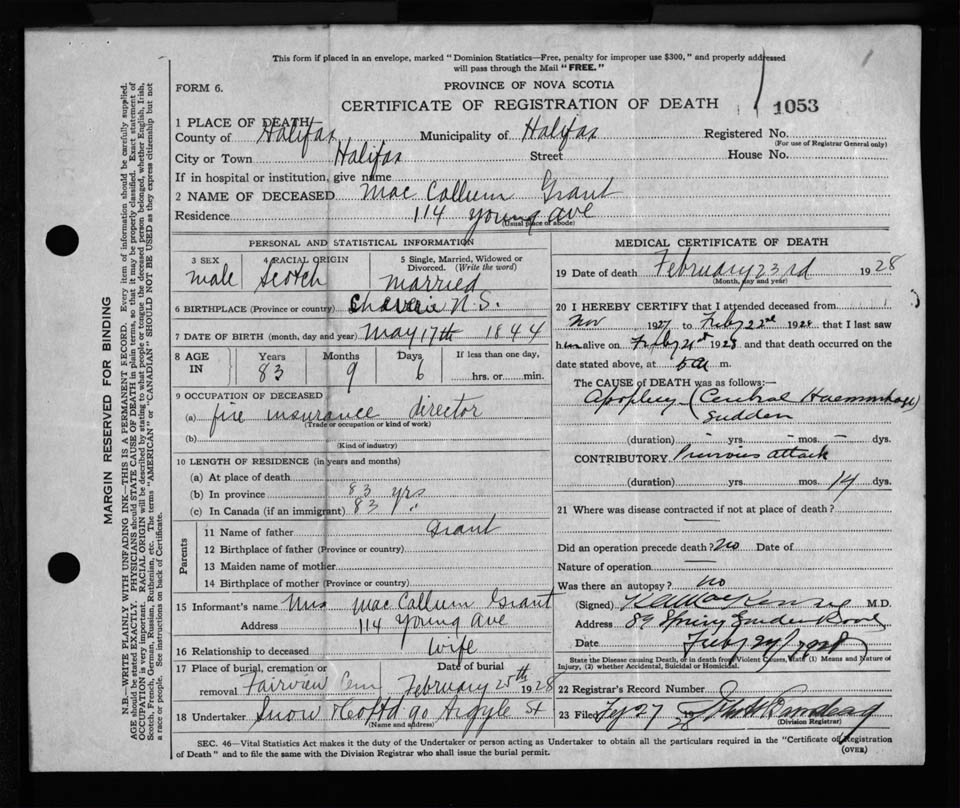 This form if placed in an envelope, marked "Dominion Statistics—Free, penalty for improper use $300," and properly addressed
will pass through the Mail "FREE."
FORM 6.
PROVINCE OF NOVA SCOTIA
CERTIFICATE OF REGISTRATION OF DEATH
1053
1 PLACE OF DEATH
County of Halifax Municipality of Halifax Registered No.
(For use of Registrar General only)
City or Town Halifax Street House No.
If in hospital or institution, give name
2 NAME OF DECEASED Mac Callum Grant
Residence 114 Young Ave
(Usual place of abode)
PERSONAL AND STATISTICAL INFORMATION
3 SEX 4 RACIAL ORIGIN 5 Single, Married, Widowed or
Divorced. (Write the word)
male Scotch married
6 BIRTHPLACE (Province or country) N.S.
7 DATE OF BIRTH (month, day and year) May 17th 1844
8 AGE IN Years Months Days If less than one day,
83 9 6 hrs. or min.
9 OCCUPATION OF DECEASED
(a) fire insurance director
(Trade or occupation or kind of work)
(b)
(Kind of industry)
10 LENGTH OF RESIDENCE (in years and months)
(a) At place of death
(b) In province 83 yrs
(c) In Canada (if an immigrant) 83 "
Parents
11 Name of father Grant
12 Birthplace of father (Province or country)
13 Maiden name of mother
14 Birthplace of mother (Province or country)
15 Informant's name Mrs Mac Callum Grant
Address 114 Young Ave
16 Relationship to deceased Wife
17 Place of burial, cremation or Date of burial
removal Fairview Cem February 25th 1928
18 Undertaker Snow & Co Ltd 90 Argyle St
(Name and address)
MEDICAL CERTIFICATE OF DEATH
19 Date of death February 23rd 1928
(Month, day and year)
20 I HEREBY CERTIFY that I attended deceased from
Nov 1927 to Feby 22nd 1928 that I last saw
him alive on Feby 21st 1928 and that death occurred on the
date stated above, at m.
The CAUSE OF DEATH was as follows:—
Apoplexy (Cerebral Haemorrhage)
Sudden
(duration) – yrs. – mos. – dys.
CONTRIBUTORY Previous attack
(duration) yrs. mos. 14 dys.
21 Where was disease contracted if not at place of death?
Did an operation precede death? No Date of
Nature of operation
Was there an autopsy? no
(Signed) M.D.
Address 89 Spring Garden Road
Date Feby 24/1928
State the Disease causing Death, or in death from Violent Causes, state (1) Means and Nature of
Injury, (2) whether Accidental, Suicidal or Homicidal.
22 Registrar's Record Number
23 Filed 27 1928
(Division Registrar)
SEC. 46—Vital Statistics Act makes it the duty of the Undertaker or person acting as Undertaker to obtain all the particulars required in the "Certificate of Registration
of Death" and to file the same with the Division Registrar who shall issue the burial permit.
(OVER)
MARGIN RESERVED FOR BINDING
N.B.—WRITE PLAINLY WITH UNFADING INK—THIS IS A PERMANENT RECORD. Every item of information should be carefully supplied.
AGE should be stated EXACTLY. PHYSICIANS should STATE CAUSE OF DEATH in plain terms, so that it may be properly classified. Exact statement of
OCCUPATION is very important. RACIAL ORIGIN will be described by stating to what people or tongue the deceased person belonged, whether English, Irish,
Scotch, French, German, Russian, Ruthenian, etc. The terms "AMERICAN" or "CANADIAN" SHOULD NOT BE USED as they express citizenship but not
a race or people. See instructions on back of Certificate.